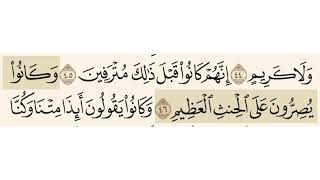 وَلَا كَرِيمٍ ٤٤ إِنَّهُمْ كَانُوا۟ قَبْلَ ذَٰلِكَ مُتْرَفِينَ ٤٥ وَكَانُوا۟
يُصِرُّونَ عَلَى ٱلْحِنثِ ٱلْعَظِيمِ ٤٦ وَكَانُوا۟ يَقُولُونَ أَئِذَا مِتْنَا وَكُنَّا